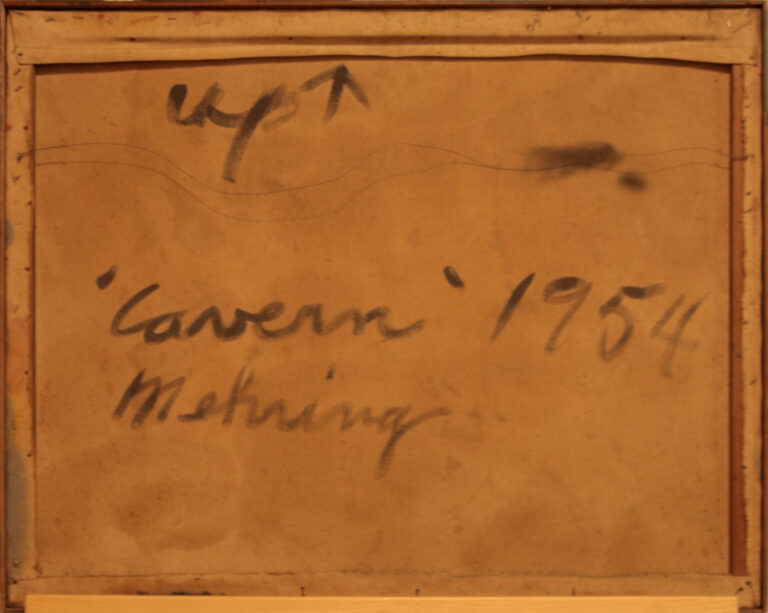 up↑
'Cavern' 1954
Mehring